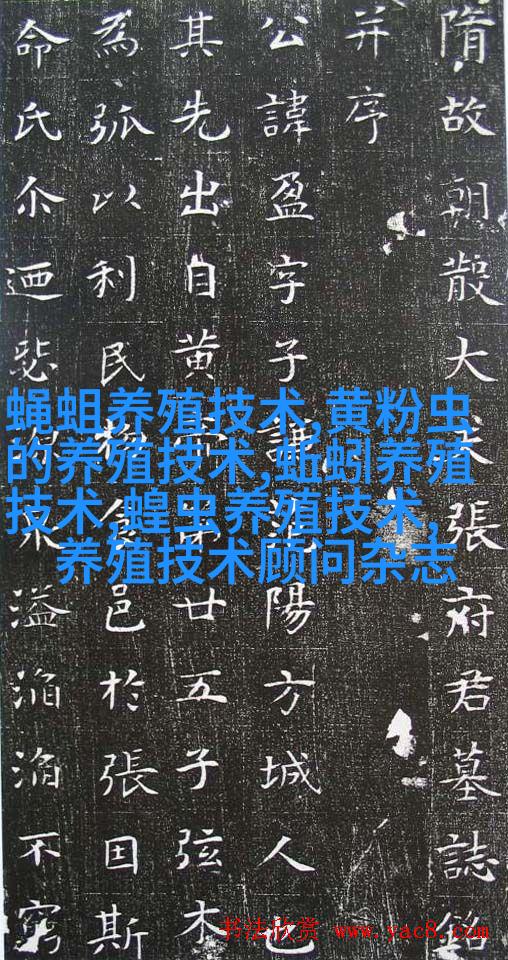 隋故朝散大夫張府君墓誌銘
并序
公諱盈字子謙范陽方城人也
其先出自黄帝第廿五子弦木
為弧以利民食邑於張因斯
命氏尒迺溢滔滔不窮
蝇蛆养殖技术,黄粉虫
的养殖技术,蚯蚓养殖
技术,蝗虫养殖技术,
养殖技术顾问杂志
书法欣赏 www.yac8.com